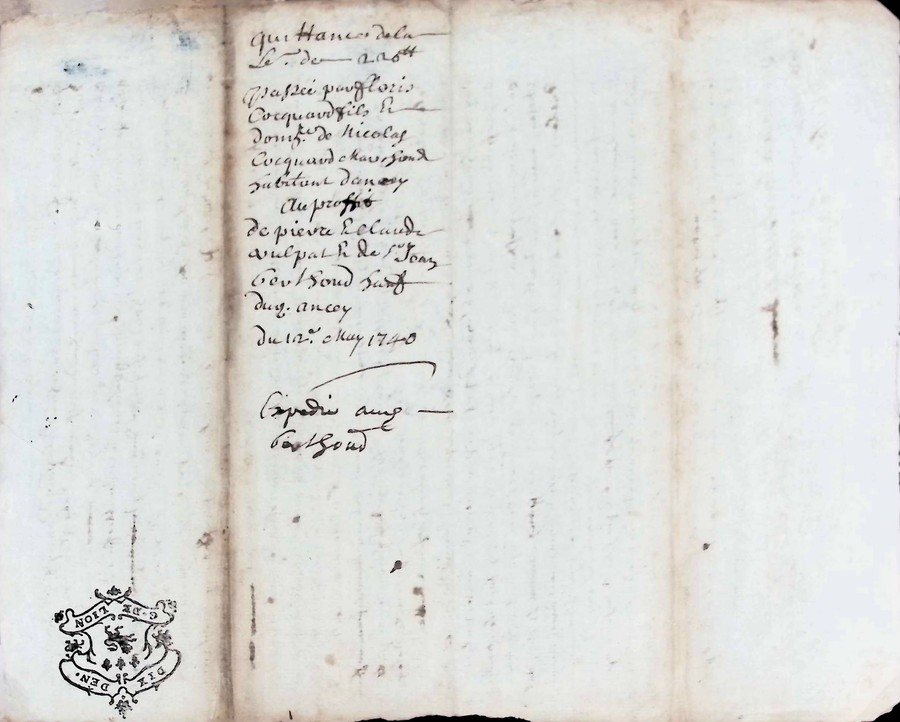 quittance de la
Se. de 226tt
passée par floris
Cocquard fils &
domqe. de Nicolas
Cocquard Marchand
habitant dancey
au proffit
de pierre & Claude
vulpat & de Sr. Jean
berthoud
dud. ancey
du 12e. May 1740
Expedié aud
berthoud
G. DE LION
DIX DEN.